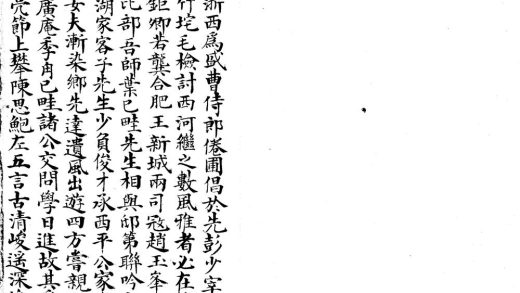 浙西為盛曹侍郎倦圃倡於先彭少宰
竹垞毛檢討西河繼之數風雅者必在
鉅卿若龔合肥王新城兩司寇趙玉峯
比部吾師葉已畦先生相與邸第聯吟
湖家客子先生少負俊才承西平公家
女夫漸染鄉先達遺風出遊四方嘗親
廣庵季冉已畦諸公交問學日進故其
節上攀陳思鮑左五言古清峻遥深